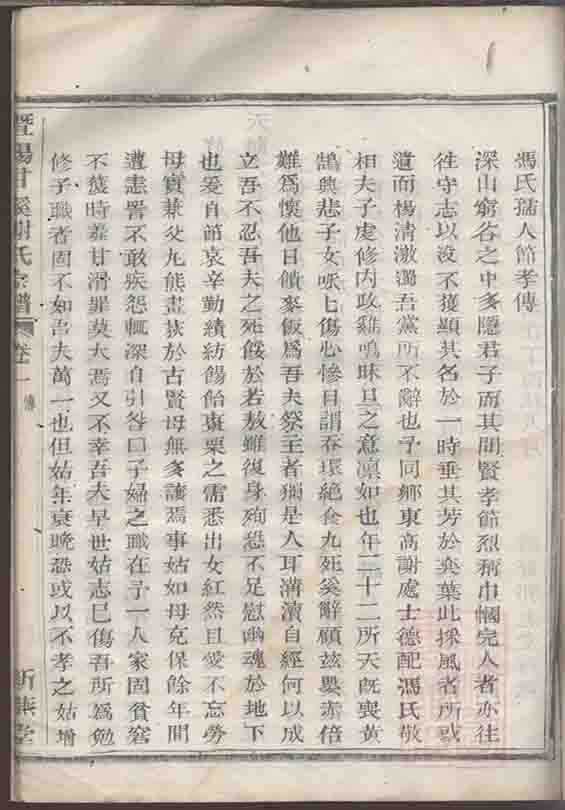 馮氏孺人節孝傳
深山窮谷之中多隱君子而其間賢孝節烈稱巾幗完人者亦往
徃守志以没不獲顯其名於一時垂其芳於奕葉此採風者所或
遺而楊清激濁吾黨所不辭也予同鄉東高謝處士德配馮氏敬
相夫子虔修内政雞鳴昧旦之意凛如也年二十二所天旣喪黄
鵠興悲子女呱七傷心慘目謂吞環絶食九死奚辭顧兹嬰赤倍
難爲懷他日饋麥飯爲吾夫祭主者獨是人耳溝瀆自經何以成
立吾不忍吾夫之死餒於若敖雖復身殉恐不足慰幽魂於地下
也爰自節哀辛勤績紡餳飴棗栗之需悉出女紅然且愛不忘勞
母實兼父九熊畫荻於古賢母無多讓焉事姑如母克保餘年間
遭恚詈不敢疾怨輒深自引咎曰子婦之職在予一人家固貧窘
不獲時羞甘滑罪莫大焉又不幸吾夫早世姑志巳傷吾所爲勉
修子職者固不如吾夫萬一也但姑年衰晩恐或以不孝之姑增
暨陽甘溪謝氏宗譜 卷一 傳